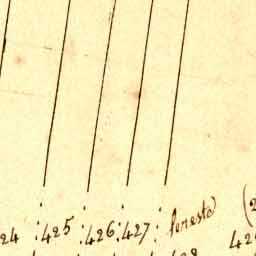 24 : 425 : 426 : 427 : fenesta (2